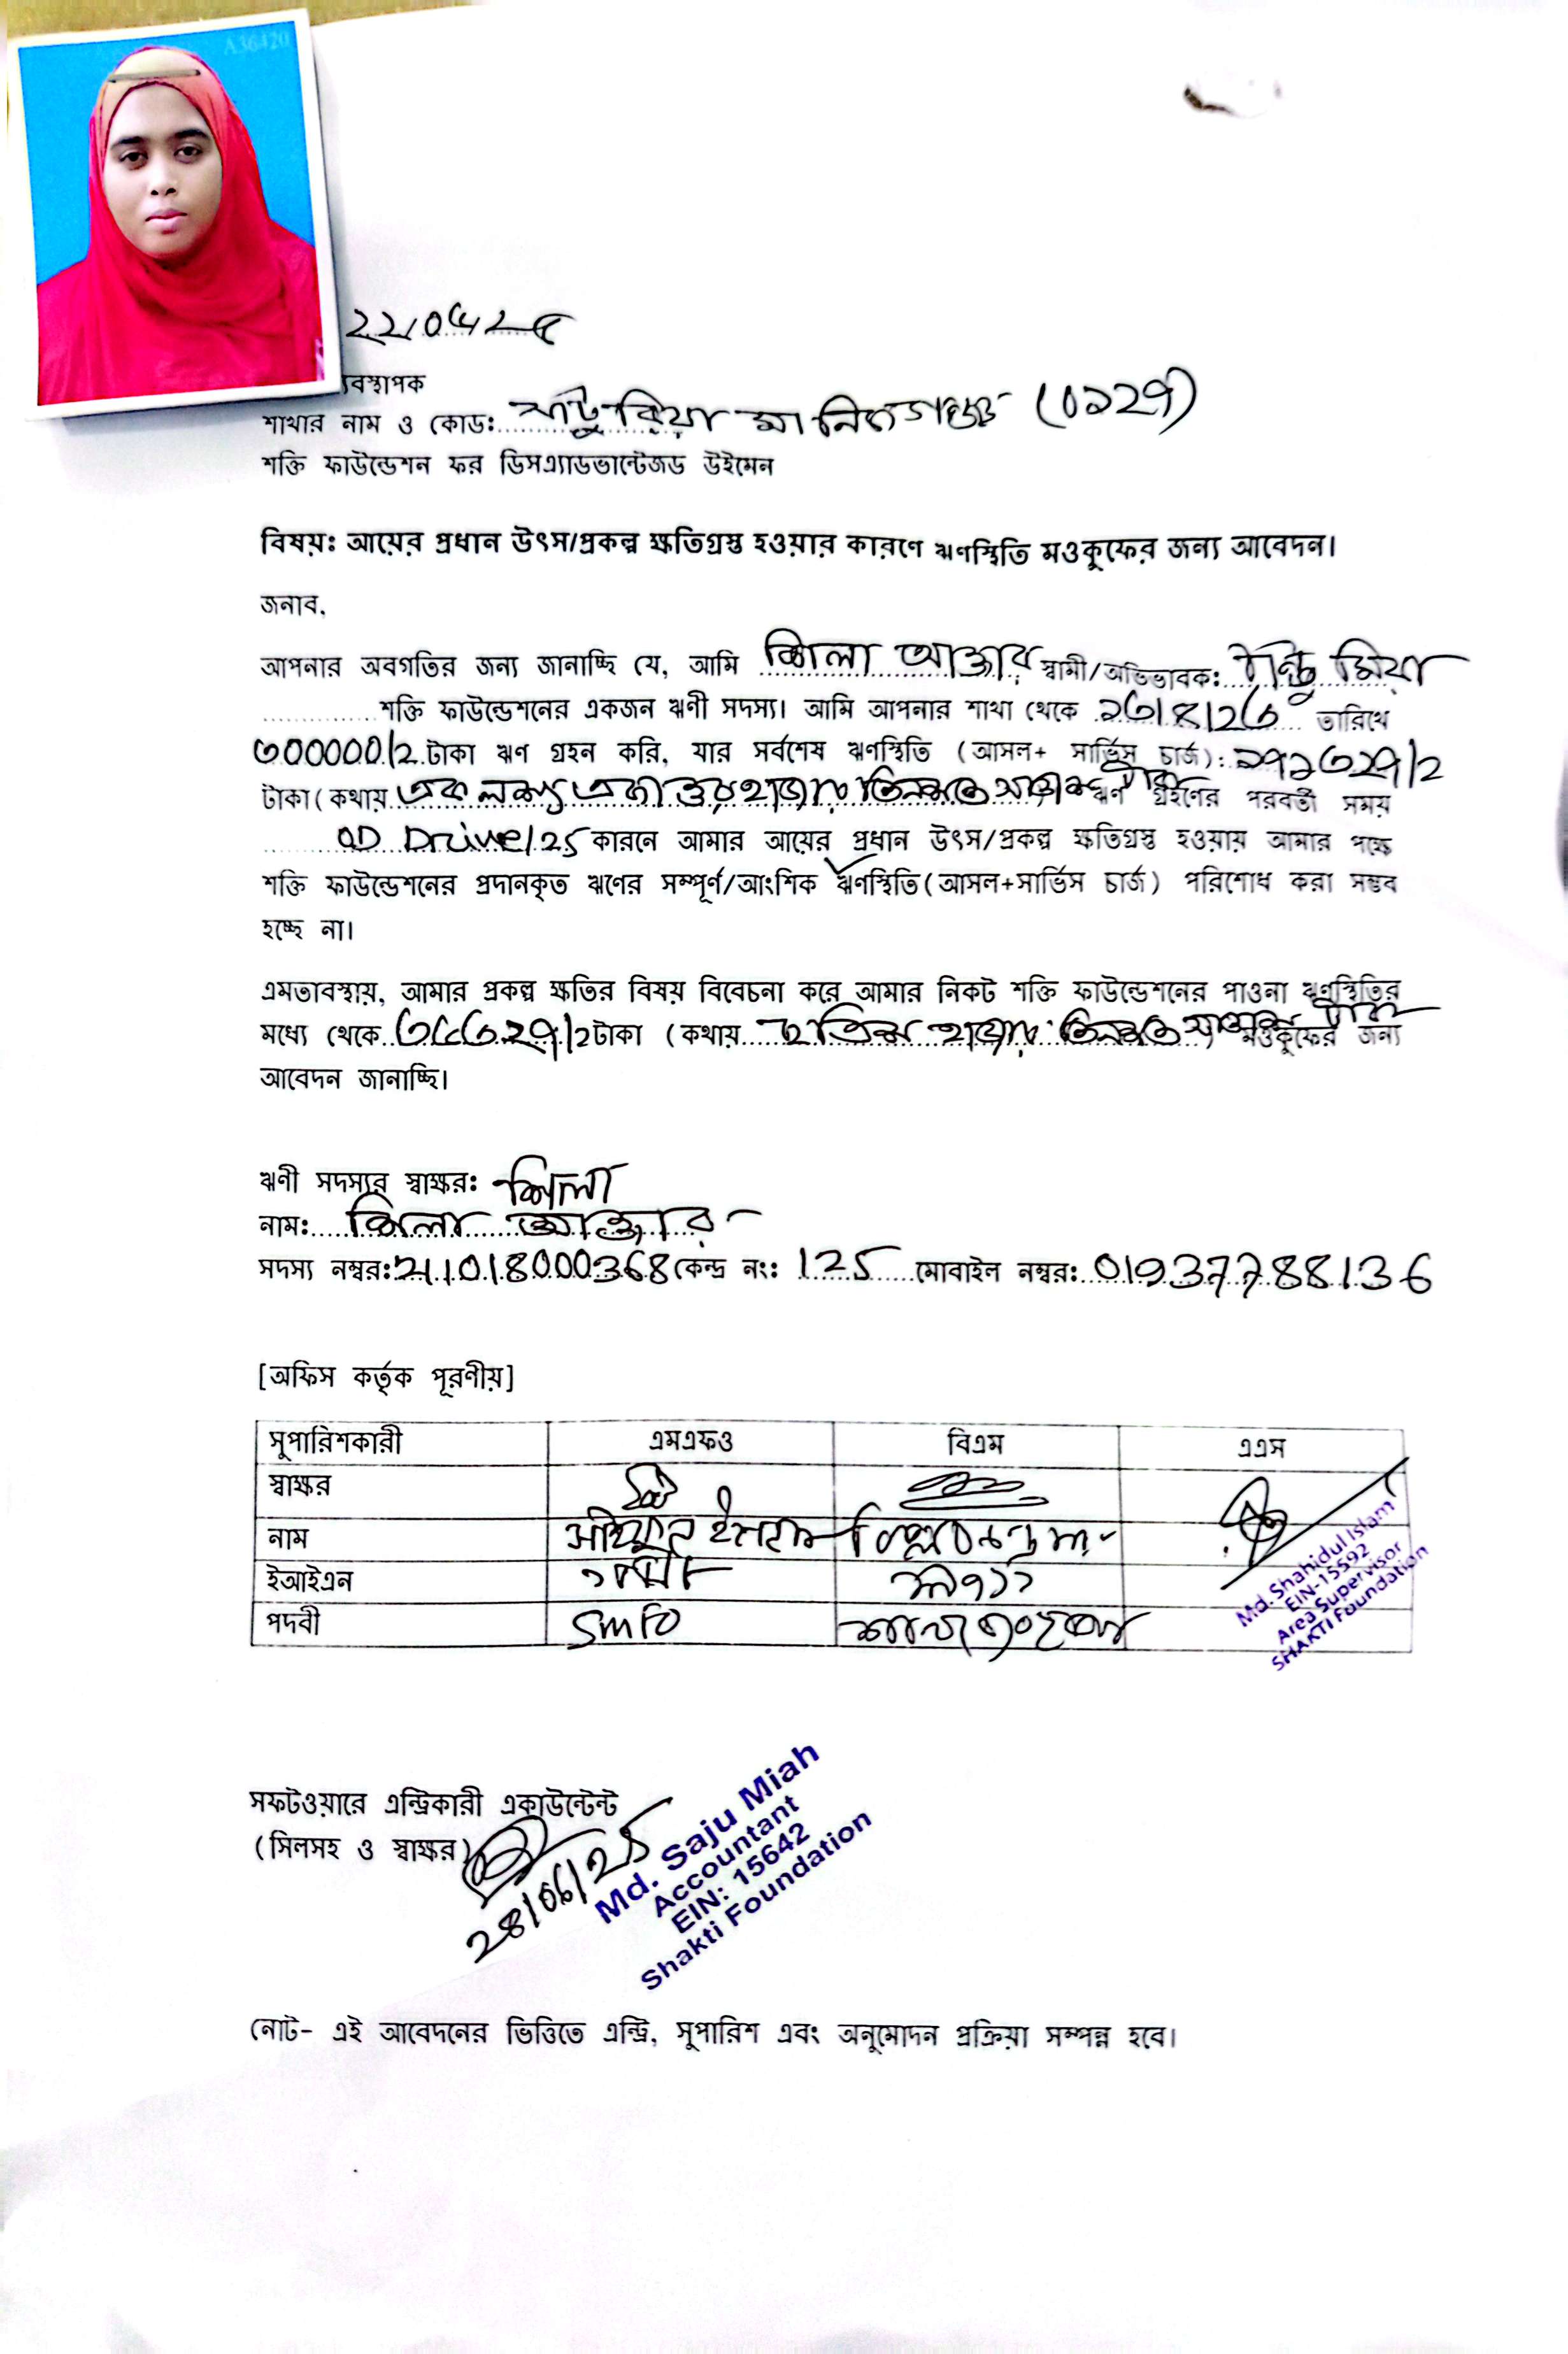 A36420
ব্যবস্থাপক
শাখার নাম ও কোড: সাটুরিয়া মানিকগঞ্জ (০১২৭)
শক্তি ফাউন্ডেশন ফর ডিসএ্যাডভান্টেজড উইমেন
বিষয়ঃ আয়ের প্রধান উৎস/প্রকল্প ক্ষতিগ্রস্ত হওয়ার কারণে ঋণস্থিতি মওকুফের জন্য আবেদন।
জনাব,
আপনার অবগতির জন্য জানাচ্ছি যে, আমি শিলা আক্তার স্বামী/অভিভাবক: মিয়া
শক্তি ফাউন্ডেশনের একজন ঋণী সদস্য। আমি আপনার শাখা থেকে তারিখে
৩০০০০০/২ টাকা ঋণ গ্রহন করি, যার সর্বশেষ ঋণস্থিতি (আসল+ সার্ভিস চার্জ): ১৭১৩২৭/২
টাকা (কথায় এক লক্ষ্য একাত্তর হাজার তিনশত সাতাশ টাকা ঋণ গ্রহণের পরবর্তী সময়
OD Drive/25 কারনে আমার আয়ের প্রধান উৎস/প্রকল্প ক্ষতিগ্রস্ত হওয়ায় আমার পক্ষে
শক্তি ফাউন্ডেশনের প্রদানকৃত ঋণের সম্পূর্ণ/আংশিক ঋণস্থিতি (আসল+সার্ভিস চার্জ) পরিশোধ করা সম্ভব
হচ্ছে না।
এমতাবস্থায়, আমার প্রকল্প ক্ষতির বিষয় বিবেচনা করে আমার নিকট শক্তি ফাউন্ডেশনের পাওনা ঋণস্থিতির
মধ্যে থেকে টাকা (কথায় হাজার তিনশত সাতাশ টাকা) মওকুফের জন্য
আবেদন জানাচ্ছি।
ঋণী সদস্যর স্বাক্ষরঃ শিলা
নাম: শিলা আক্তার
সদস্য নম্বর: 211018000368 কেন্দ্র নং: 125 মোবাইল নম্বর: 01937788136
[অফিস কর্তৃক পূরণীয়]
সুপারিশকারী এমএফও বিএম এএস
স্বাক্ষর
নাম
ইআইএন
পদবী SMFO
Md. Shahidul Islam
EIN-15592
Area Supervisor
SHAKTI Foundation
সফটওয়ারে এন্ট্রিকারী একাউন্টেন্ট
(সিলসহ ও স্বাক্ষর)
28/06/25
Md. Saju Miah
Accountant
EIN: 15642
Shakti Foundation
নোট- এই আবেদনের ভিত্তিতে এন্ট্রি, সুপারিশ এবং অনুমোদন প্রক্রিয়া সম্পন্ন হবে।